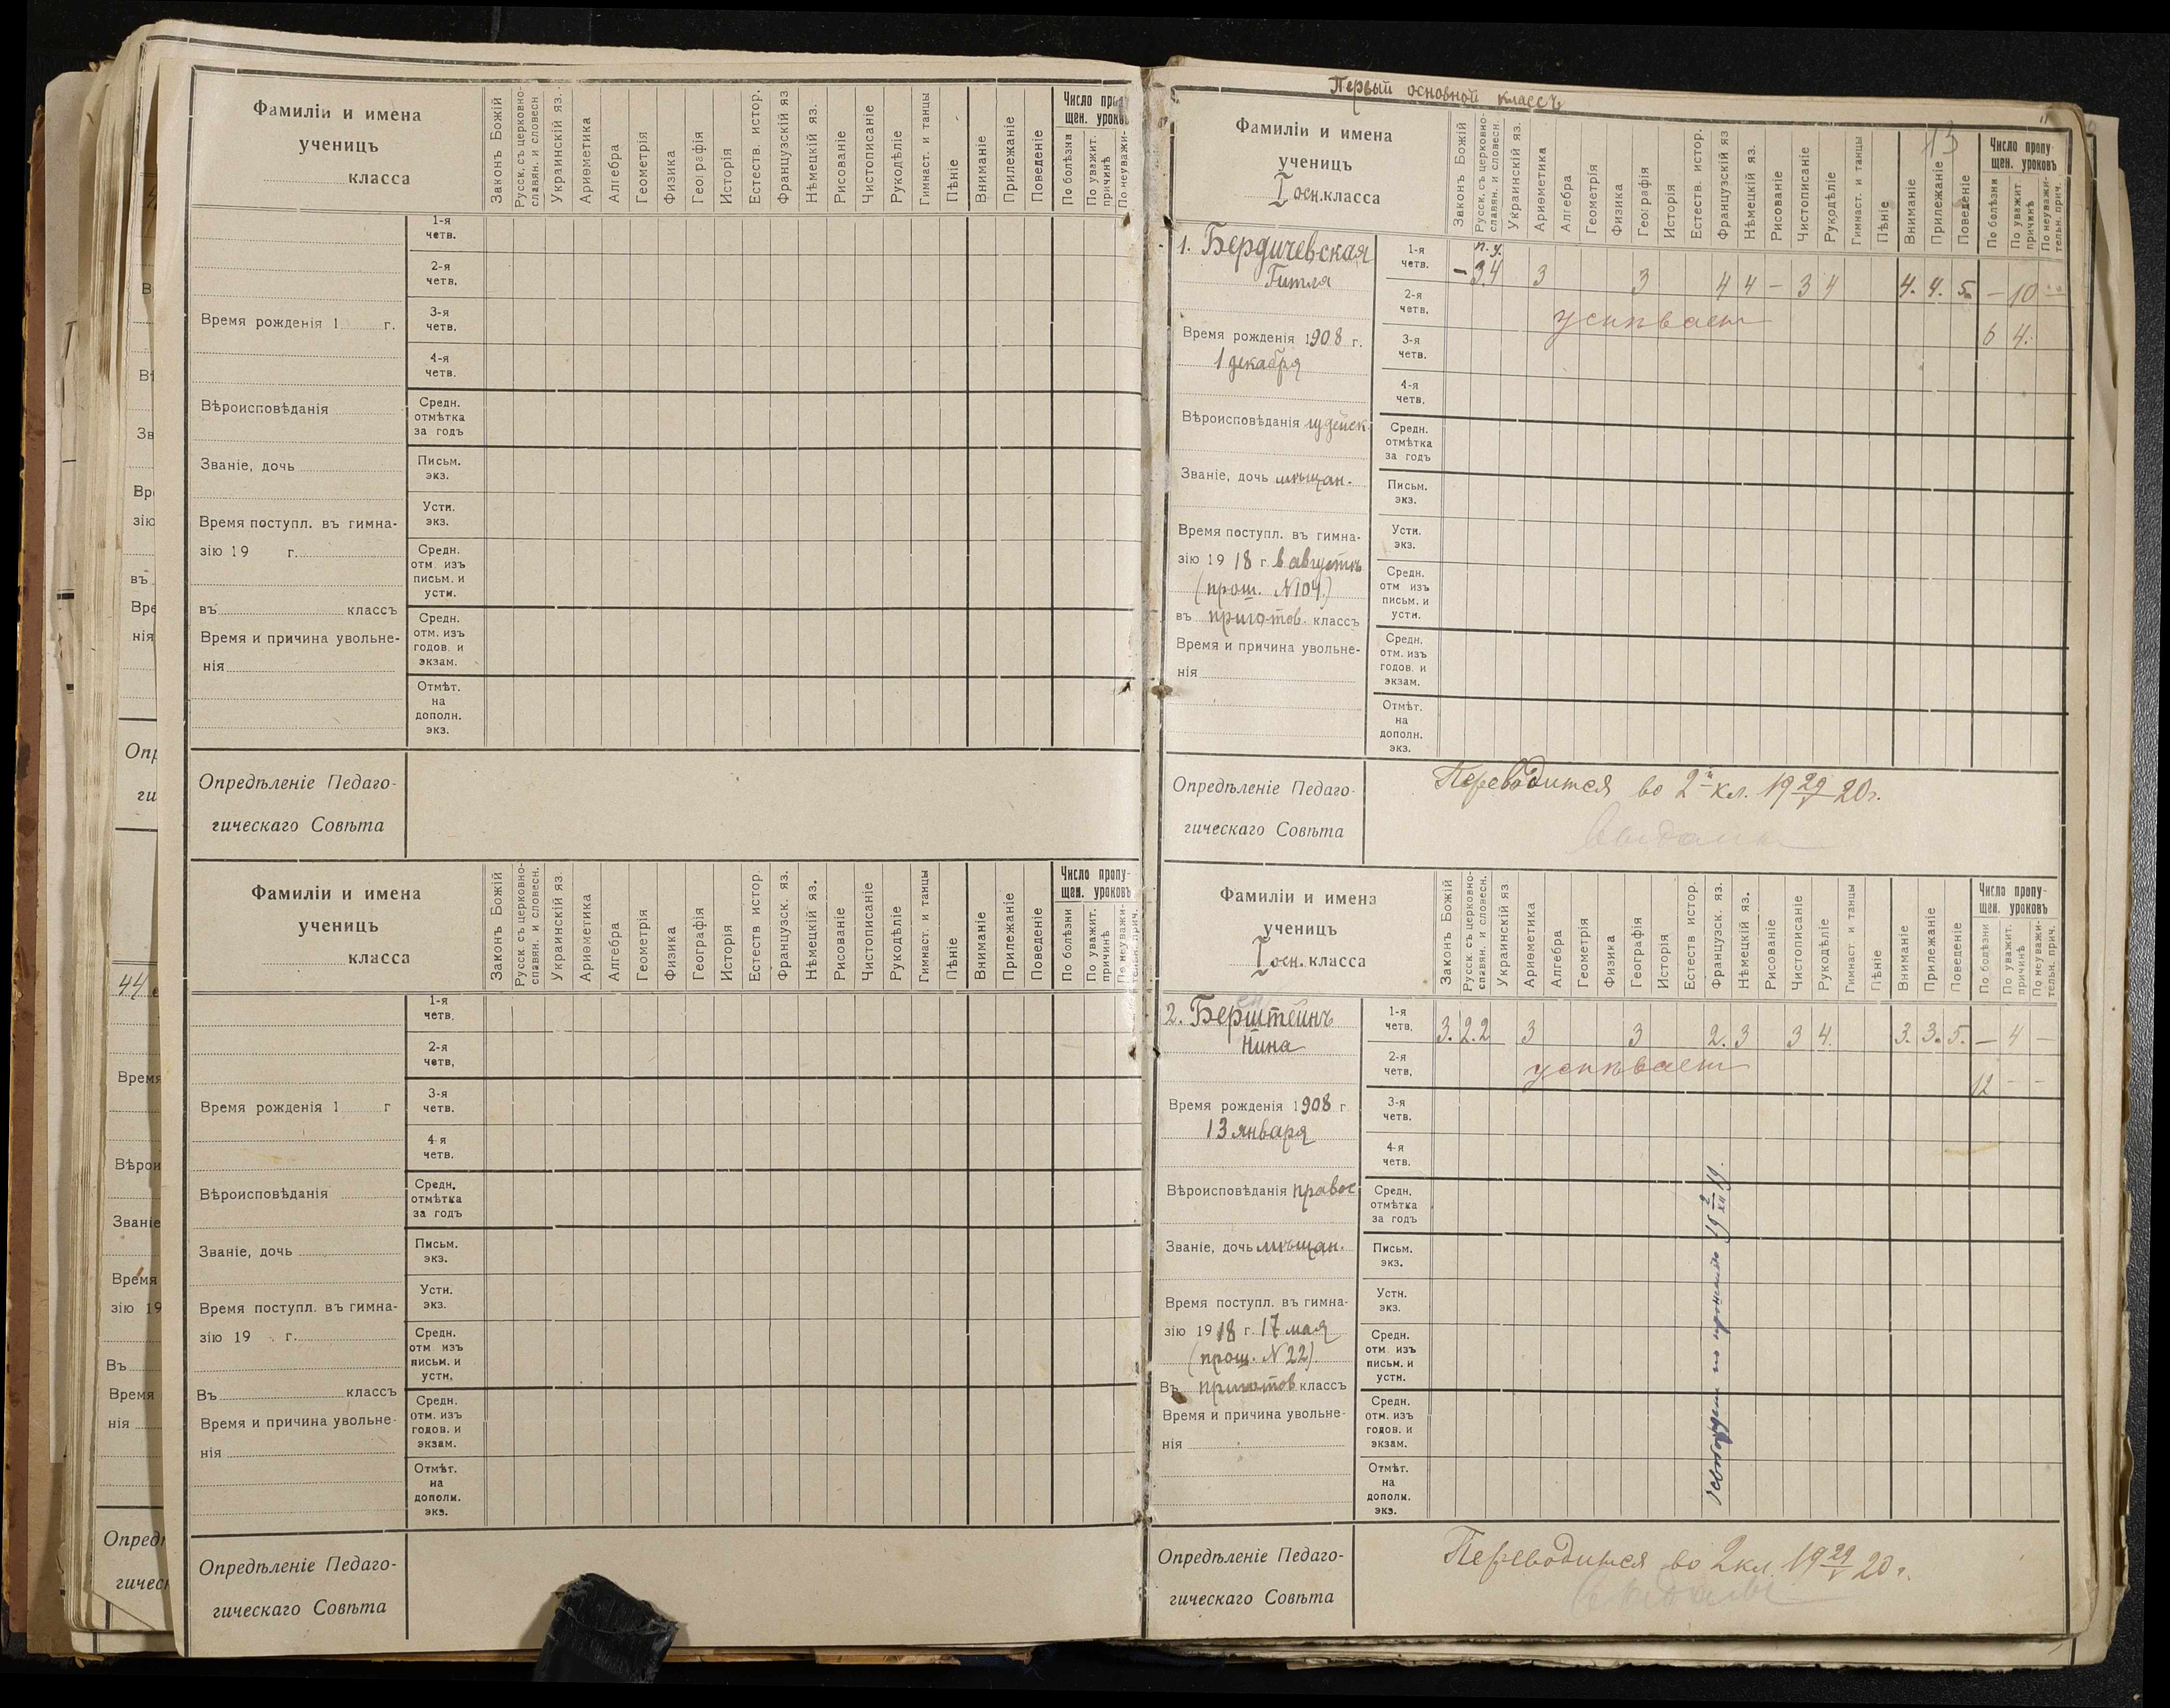 Фамиліи и имена
ученицъ
класса
Законъ Божій
Русск. съ церковно-
славян. и словесн
Украинскій яз.
Ариѳметика
Алгебра
Геометрія
Физика
Географія
Исторія
Естеств. истор.
Французскій яз
Нѣмецкій яз.
Рисованіе
Чистописаніе
Рукодѣліе
Гимнаст. и танцы
Пѣніе
Вниманіе
Прилежаніе
Поведеніе
Число
щен. уроковъ
По болѣзни
По уважит.
причинѣ
По неуважи-
1-я
четв.
2-я
четв.
3-я
четв.
4-я
четв.
Средн.
отмѣтка
за годъ
Письм.
экз.
Устн.
экз.
Средн.
отм. изъ
письм. и
устн.
Средн.
отм. изъ
годов. и
экзам.
Отмѣт.
на
дополн.
экз.
Время рожденія 1 г.
Вѣроисповѣданія
Званіе, дочь
Время поступл. въ гимна-
зію 19 г.
въ классъ
Время и причина увольне-
нія
Опредѣленіе Педаго-
гическаго Совѣта
Фамиліи и имена
ученицъ
класса
Законъ Божій
Русск. съ церковно-
славян. и словесн.
Украинскій яз.
Ариѳметика
Алгебра
Геометрія
Физика
Географія
Исторія
Естеств истор.
Французск. яз.
Нѣмецкій яз.
Рисованіе
Чистописаніе
Рукодѣліе
Гимнаст. и танцы
Пѣніе
Вниманіе
Прилежаніе
Поведеніе
Число пропу-
щен. уроковъ
По болѣзни
По уважит.
причинѣ
По неуважи-
1-я
четв.
2-я
четв.
3-я
четв.
4-я
четв.
Средн.
отмѣтка
за годъ
Письм.
экз.
Устн.
экз.
Средн.
отм изъ
письм. и
устн.
Средн.
отм. изъ
годов. и
экзам.
Отмѣт.
на
дополн.
экз.
Время рожденія 1 г
Вѣроисповѣданія
Званіе, дочь
Время поступл. въ гимна-
зію 19 г.
Въ классъ
Время и причина увольне-
нія
Опредѣленіе Педаго-
гическаго Совѣта
Первый основной классъ
13
Фамиліи и имена
ученицъ
I осн. класса
Законъ Божій
Русск. съ церковно-
славян. и словесн.
Украинскій яз.
Ариѳметика
Алгебра
Геометрія
Физика
Географія
Исторія
Естеств. истор.
Французскій яз
Нѣмецкій яз.
Рисованіе
Чистописаніе
Рукодѣліе
Гимнаст. и танцы
Пѣніе
Вниманіе
Прилежаніе
Поведеніе
Число пропу-
щен. уроковъ
По болѣзни
По уважит
причинѣ
По неуважи-
тельн. прич.
1. Бердичевская
Гитля
1-я
четв.
п. у.
– 3 4 3 3 4 4 – 3 4 4. 4. 5. – 10 –
2-я
четв.
успѣваетъ
6 4.
3-я
четв.
4-я
четв.
Средн.
отмѣтка
за годъ
Письм.
экз.
Устн.
экз.
Средн.
отм изъ
письм. и
устн.
Средн.
отм. изъ
годов. и
экзам.
Отмѣт.
на
дополн.
экз.
Время рожденія 1908 г.
1 декабря
Вѣроисповѣданія іудейск.
Званіе, дочь мѣщан.
Время поступл. въ гимна-
зію 19 18 г. в августѣ
(прош. N 104.)
въ приготов. классъ
Время и причина увольне-
нія
Опредѣленіе Педаго-
гическаго Совѣта
Переводится во 2й кл. 19 29/V 20 г.
Фамиліи и имена
ученицъ
I осн. класса
Законъ Божій
Русск. съ церковно-
славян. и словесн.
Украинскій яз
Ариѳметика
Алгебра
Геометрія
Физика
Географія
Исторія
Естеств истор.
Французск. яз.
Нѣмецкій яз.
Рисованіе
Чистописаніе
Рукодѣліе
Гимнаст. и танцы
Пѣніе
Вниманіе
Прилежаніе
Поведеніе
Число пропу-
щен. уроковъ
По болѣзни
По уважит.
причинѣ
По неуважи-
тельн. прич.
2. Берштейнъ
Нина
1-я
четв.
3. 2. 2 3 3 2. 3 3 4. 3. 3. 5. – 4 –
2-я
четв.
успѣваетъ
12 – –
3-я
четв.
4-я
четв.
Средн.
отмѣтка
за годъ
Письм.
экз.
Устн.
экз.
Средн.
отм. изъ
письм. и
устн.
Средн.
отм. изъ
годов. и
экзам.
Отмѣт.
на
дополн.
экз.
по прошенію 19 2/XII 19.
Время рожденія 1908 г
13 января
Вѣроисповѣданія правос
Званіе, дочь мѣщан.
Время поступл. въ гимна-
зію 19 18 г. 17 мая
(прош. N 22).
Въ приготов классъ
Время и причина увольне-
нія
Опредѣленіе Педаго-
гическаго Совѣта
Переводится во 2 кл. 19 29/V 20 г.